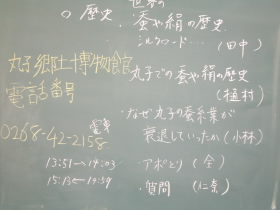 世界の
の歴史
・蚕や絹の歴史
シルクロード… (田中)
丸子郷土博物館
電話番号
0268-42-2158
電車
13:51→14:03
15:15←14:59
丸子での蚕や絹の歴史
(植村)
・なぜ丸子の蚕糸業が
衰退していったか (小林)
・アポとり (全)
・質問 (仁素)